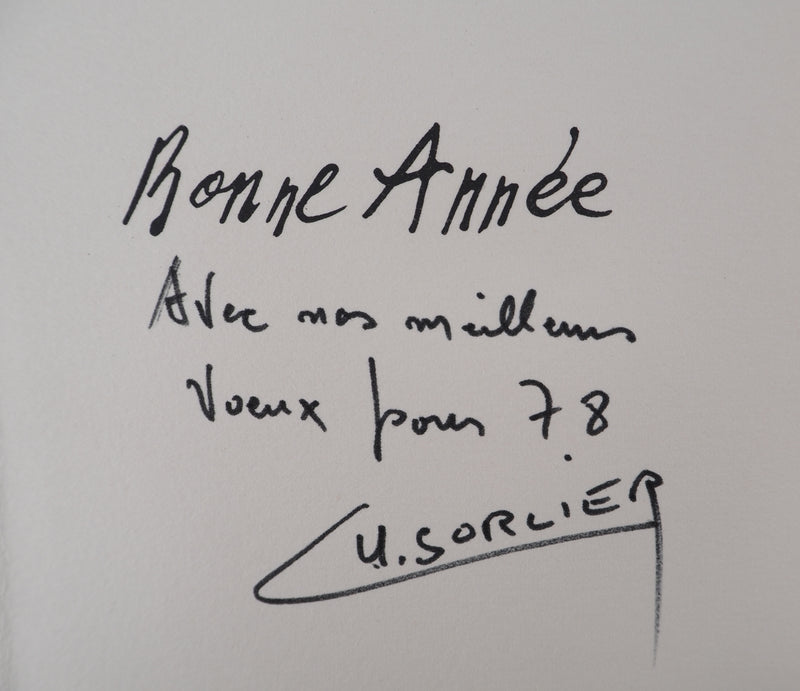 Bonne Année
Avec nos meilleurs
Voeux pour 78
CH. SORLIER